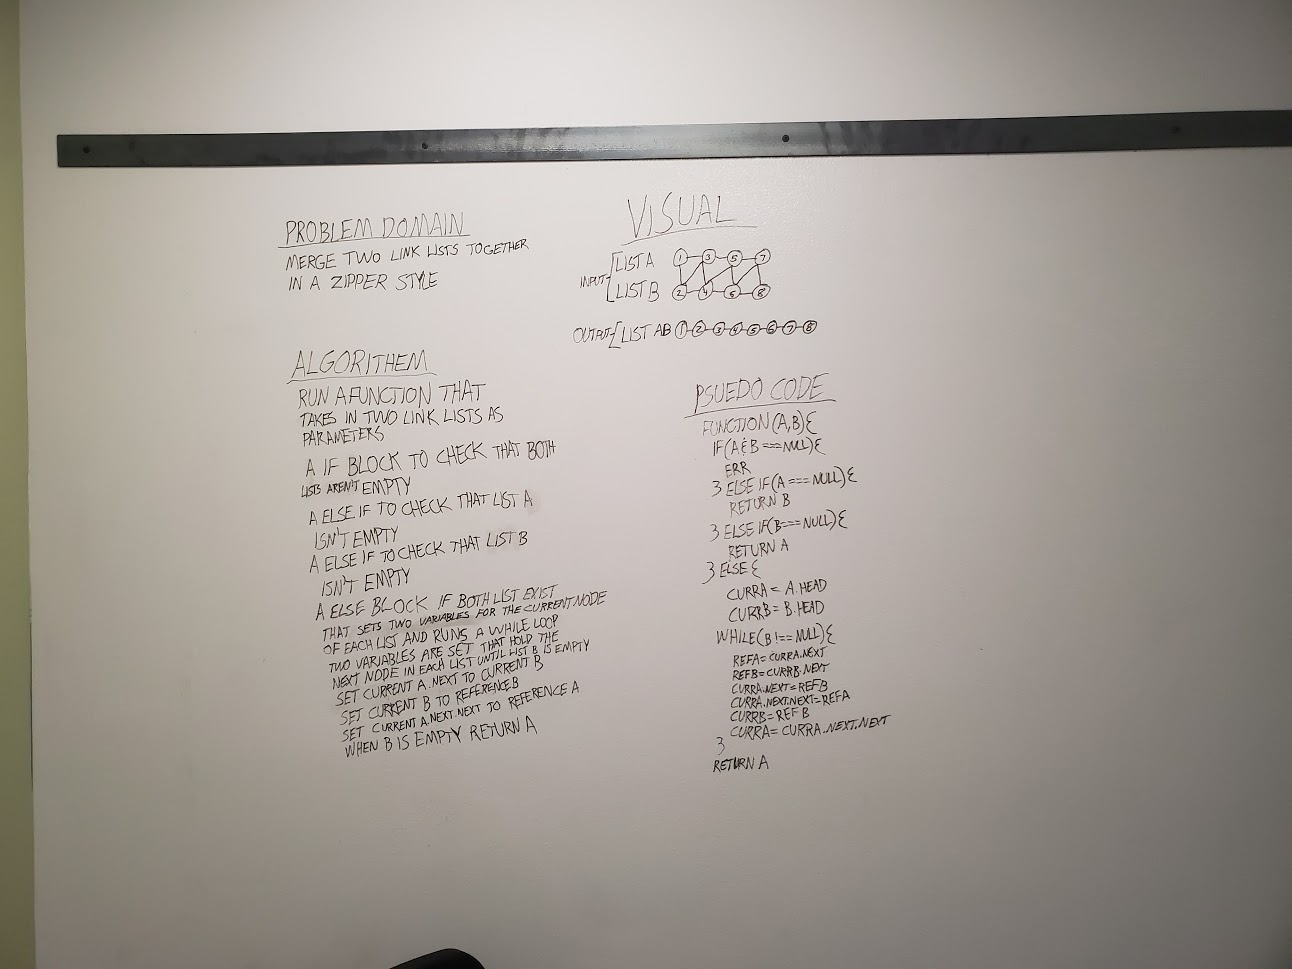 PROBLEM DOMAIN
MERGE TWO LINK LISTS TOGETHER
IN A ZIPPER STYLE
VISUAL
INPUT
LIST A 1 3 5 7
LIST B 2 4 6 8
OUTPUT LIST AB 1 2 3 4 5 6 7 8
ALGORITHEM
RUN A FUNCTION THAT
TAKES IN TWO LINK LISTS AS
PARAMETERS
A IF BLOCK TO CHECK THAT BOTH
LISTS AREN'T EMPTY
A ELSE IF TO CHECK THAT LIST A
ISN'T EMPTY
A ELSE IF TO CHECK THAT LIST B
ISN'T EMPTY
A ELSE BLOCK IF BOTH LIST EXIST
THAT SETS TWO VARIABLES FOR THE CURRENT NODE
OF EACH LIST AND RUNS A WHILE LOOP
TWO VARIABLES ARE SET THAT HOLD THE
NEXT NODE IN EACH LIST UNTIL LIST B IS EMPTY
SET CURRENT A.NEXT TO CURRENT B
SET CURRENT B TO REFERENCE B
SET CURRENT A.NEXT.NEXT TO REFERENCE A
WHEN B IS EMPTY RETURN A
PSUEDO CODE
FUNCTION(A,B){
IF(A & B === NULL){
ERR
} ELSE IF(A === NULL){
RETURN B
} ELSE IF(B === NULL){
RETURN A
} ELSE {
CURRA = A.HEAD
CURRB = B.HEAD
WHILE(B !== NULL){
REFA = CURRA.NEXT
REFB = CURRB.NEXT
CURRA.NEXT = REFB
CURRA.NEXT.NEXT = REFA
CURRB = REFB
CURRA = CURRA.NEXT.NEXT
}
RETURN A